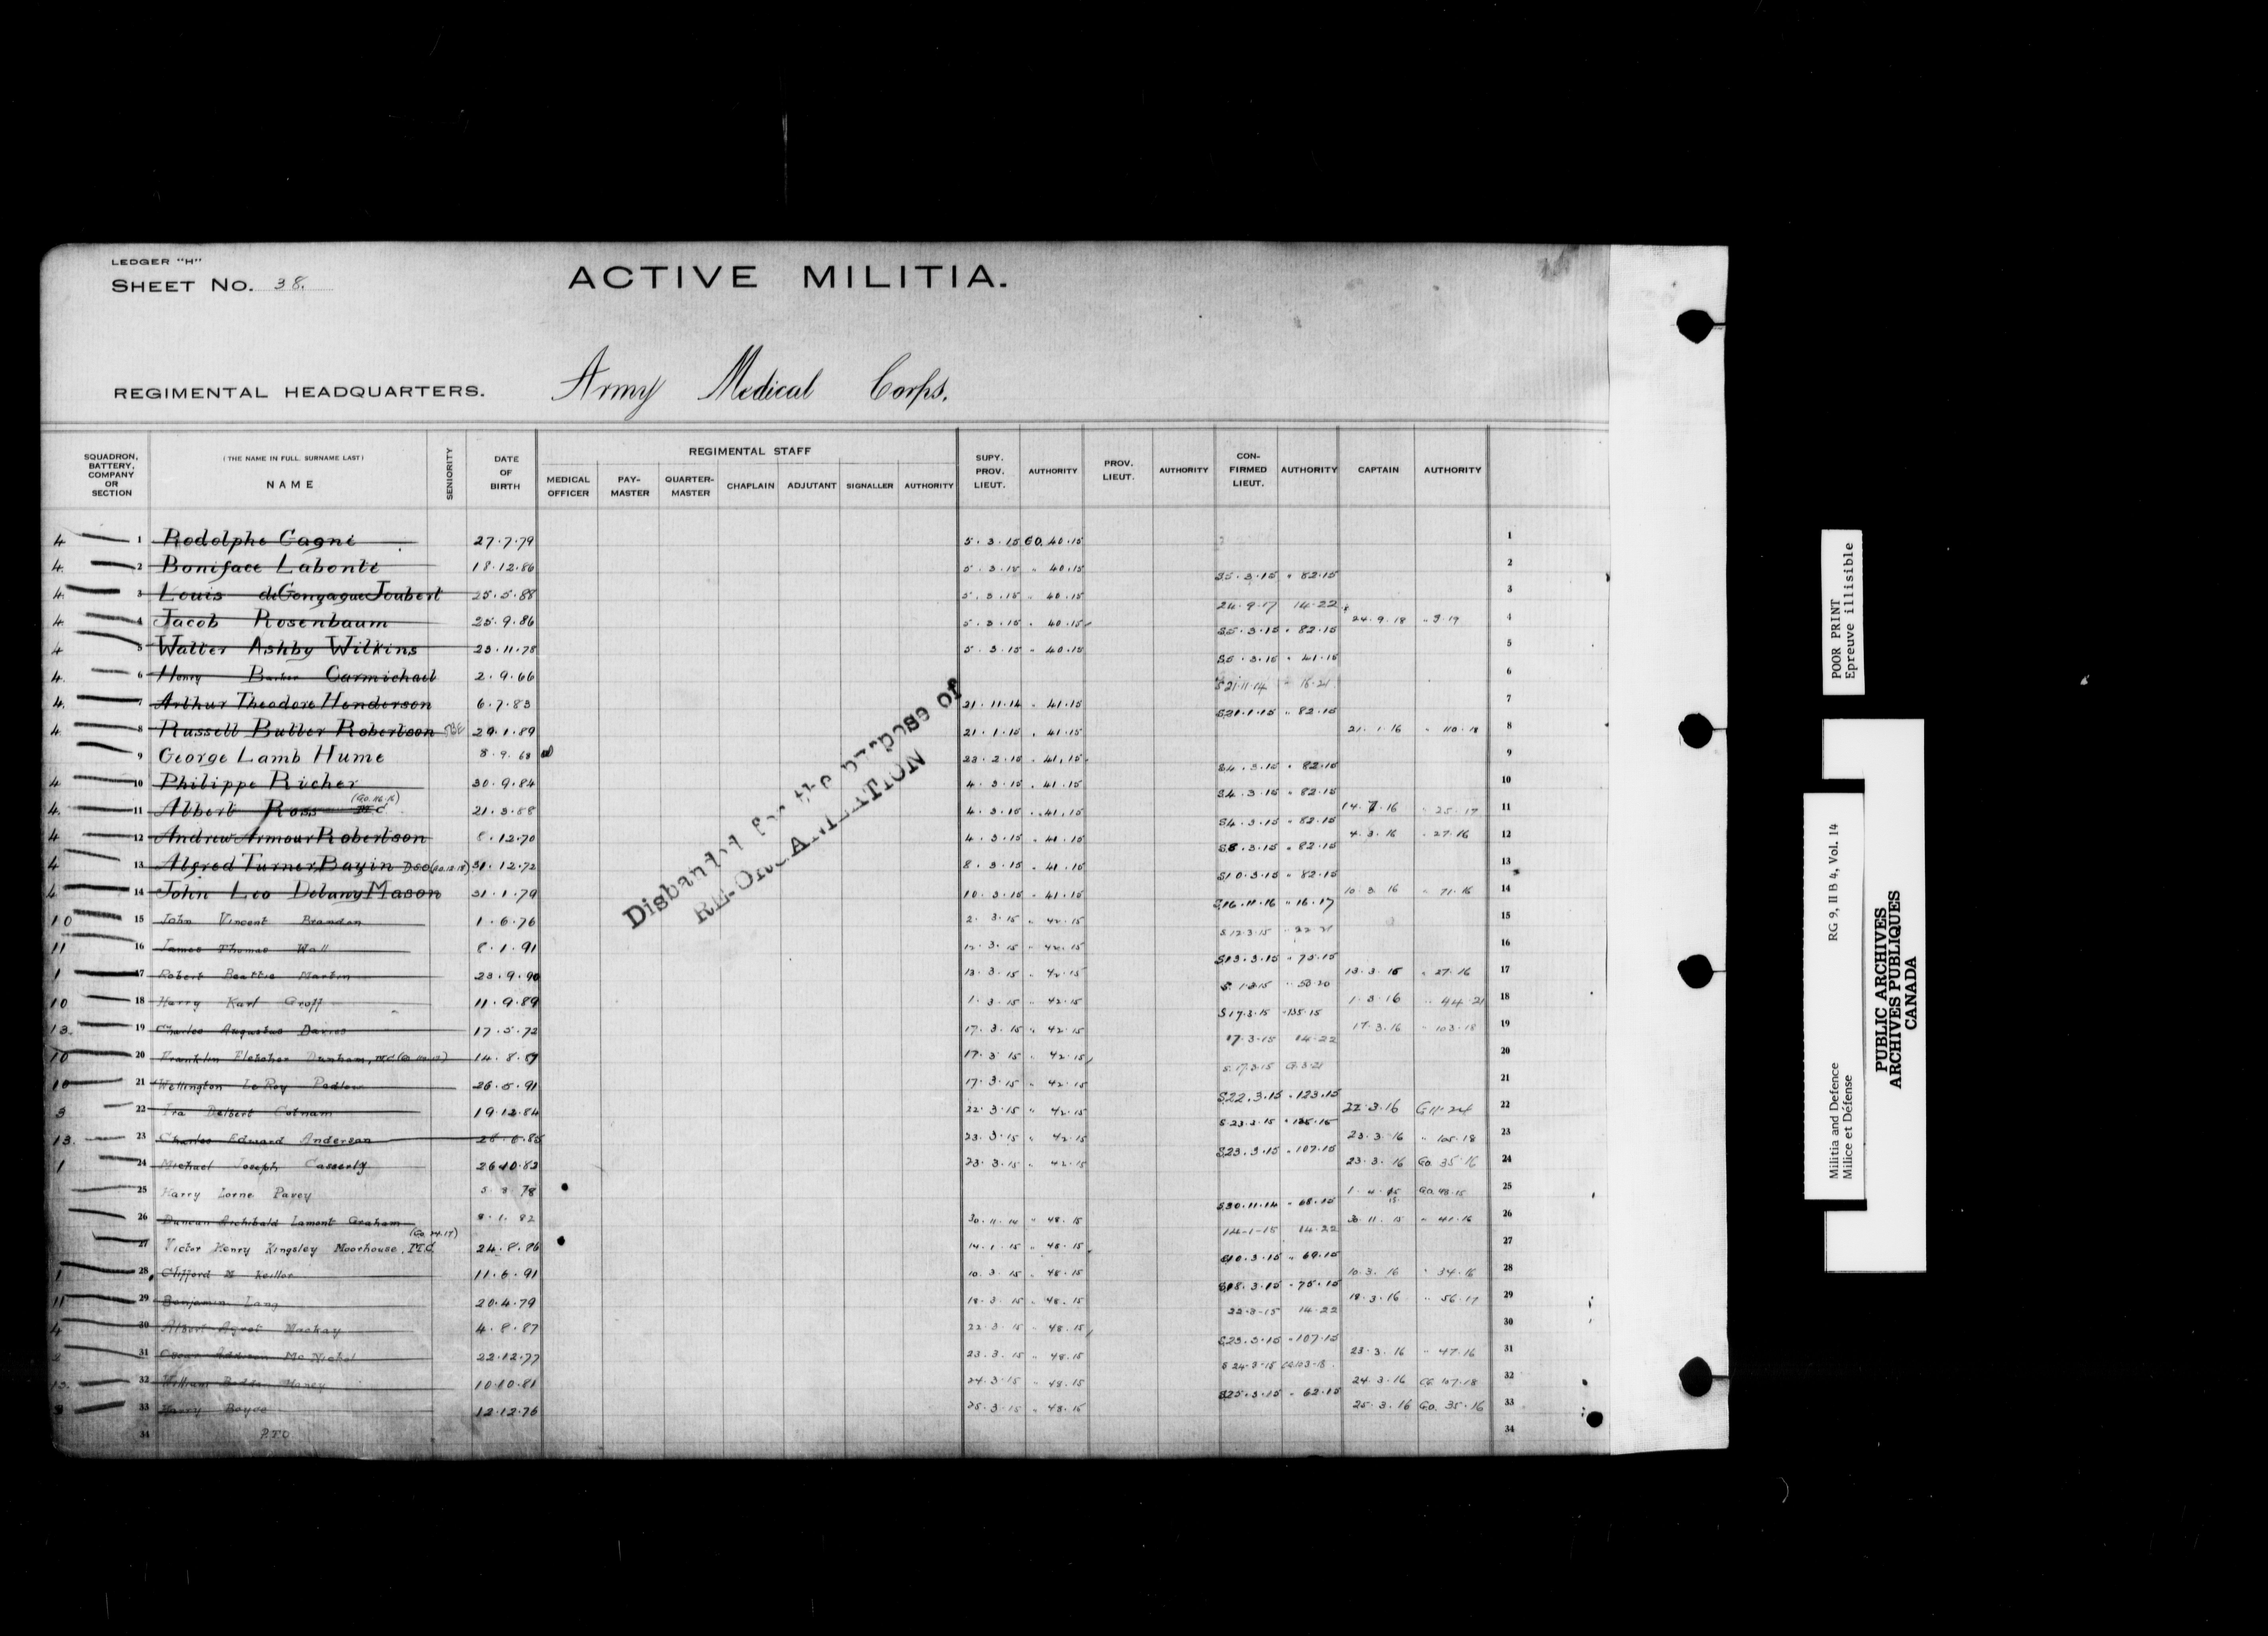 LEDGER "H"
SHEET NO. 38.
ACTIVE MILITIA.
REGIMENTAL HEADQUARTERS. Army Medical Corps.
SQUADRON, BATTERY, COMPANY OR SECTION (THE NAME IN FULL. SURNAME LAST) NAME SENIORITY DATE OF BIRTH REGIMENTAL STAFF MEDICAL OFFICER PAY-MASTER QUARTER-MASTER CHAPLAIN ADJUTANT SIGNALLER AUTHORITY SUPY. PROV. LIEUT. AUTHORITY PROV. LIEUT. AUTHORITY CON-FIRMED LIEUT. AUTHORITY CAPTAIN AUTHORITY
4 1 Rodolphe Gagné 27.7.79 5.3.15 GO. 40.15 1
4 2 Boniface Labonté 18.12.86 5.3.15 " 40.15 S5.3.15 " 82.15 2
4 3 Louis deGonzague Joubert 25.5.88 5.3.15 " 40.15 24.9.17 14.22 3
4 4 Jacob Rosenbaum 25.9.86 5.3.15 " 40.15 S5.3.15 " 82.15 24.9.18 " 9.19 4
4 5 Walter Ashby Wilkins 23.11.75 5.3.15 " 40.15 S5.3.15 " 41.15 5
4 6 Henry Barker Carmichael 2.9.66 S21.11.14 " 18.21 6
4 7 Arthur Theodore Henderson 6.7.83 21.11.14 " 41.15 S21.1.15 " 82.15 7
4 8 Russell Butler Robertson OBE 29.1.89 21.1.15 " 41.15 21.1.16 " 110.18 8
9 George Lamb Hume 8.9.63 23.2.15 " 41.15 S4.3.15 " 82.15 9
4 10 Philippe Richer 30.9.84 4.3.15 " 41.15 S4.3.15 " 82.15 10
4 11 Albert Ross MC (Go.116.16) 21.3.88 4.3.15 " 41.15 S4.3.15 " 82.15 14.7.16 " 25.17 11
4 12 Andrew Armour Robertson 8.12.70 4.3.15 " 41.15 S8.3.15 " 82.15 4.3.16 " 27.16 12
4 13 Alfred Turner Bazin DSO 31.12.72 8.3.15 " 41.15 S10.3.15 " 82.15 13
4 14 John Leo Delany Mason 31.1.79 10.3.15 " 41.15 S16.11.16 " 16.17 10.3.16 " 71.16 14
10 15 John Vincent Brandon 1.6.76 2.3.15 " 42.15 S 12.3.15 15
11 16 James Thomas Wall 8.1.91 12.3.15 " 42.15 S13.3.15 " 75.15 16
1 17 Robert Beattie Martin 23.9.90 13.3.15 " 42.15 S 1.3.15 " 50.20 13.3.15 " 27.16 17
10 18 Harry Karl Groff 11.9.89 1.3.15 " 42.15 S17.3.15 " 135.15 1.3.16 " 44.21 18
13. 19 Charles Augustus Davies 17.5.72 17.3.15 " 42.15 17.3.15 14.22 17.3.16 " 103.18 19
10 20 Franklin Fletcher Dunham, MC 14.8. 17.3.15 " 42.15 S.17.3.15 20
10 21 Wellington LeRoy Pedlow 26.5.91 17.3.15 " 42.15 S22.3.15 " 123.15 21
3 22 Ira Delbert Cotnam 19.12.84 22.3.15 " 42.15 S23.3.15 " 135.15 22.3.16 G11.24 22
13. 23 Charles Edward Anderson 28.6.85 23.3.15 " 42.15 S23.3.15 " 107.15 23.3.16 " 105.18 23
1 24 Michael Joseph Casserly 26.10.82 23.3.15 " 42.15 23.3.16 Go. 35.16 24
25 Harry Lorne Pavey 5.3.78 S30.11.14 " 68.15 1.4.15 Go.48.15 25
26 Duncan Archibald Lamont Graham 8.1.82 30.11.14 " 48.15 14-1-15 14.22 30.11.15 " 41.16 26
27 Victor Henry Kingsley Moorhouse, M.C. 24.8.86 14.1.15 " 48.15 S10.3.15 " 69.15 27
1 28 Clifford M Keillor 11.6.91 10.3.15 " 48.15 S18.3.15 " 75.15 10.3.16 " 34.16 28
11 29 Benjamin Lang 20.4.79 18.3.15 " 48.15 22-3-15 14.22 18.3.16 " 56.17 29
4 30 Mackay 4.8.87 22.3.15 " 48.15 S23.3.15 " 107.15 30
31 Oscar Addison McNichol 22.12.77 23.3.15 " 48.15 S 24.3.15 23.3.16 " 47.16 31
13. 32 William Haney 10.10.81 24.3.15 " 48.15 S25.3.15 " 62.15 24.3.16 32
3 33 Harry Boyce 12.12.76 25.3.15 " 48.15 25.3.16 Go. 35.16 33
34 P.T.O 34
Disbanded for the purpose of
RE-ORGANIZATION
POOR PRINT
Epreuve illisible
RG 9, II B 4, Vol. 14
Militia and Defence
Milice et Défense
PUBLIC ARCHIVES
ARCHIVES PUBLIQUES
CANADA